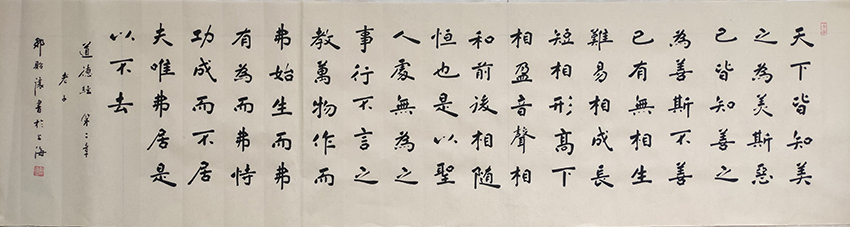 天下皆知美
之為美斯惡
已皆知善之
為善斯不善
已有無相生
難易相成長
短相形高下
相盈音聲相
和前後相隨
恒也是以聖
人處無為之
事行不言之
教萬物作而
弗始生而弗
有為而弗恃
功成而不居
夫唯弗居是
以不去
道德經 第二章
老子
書於上海